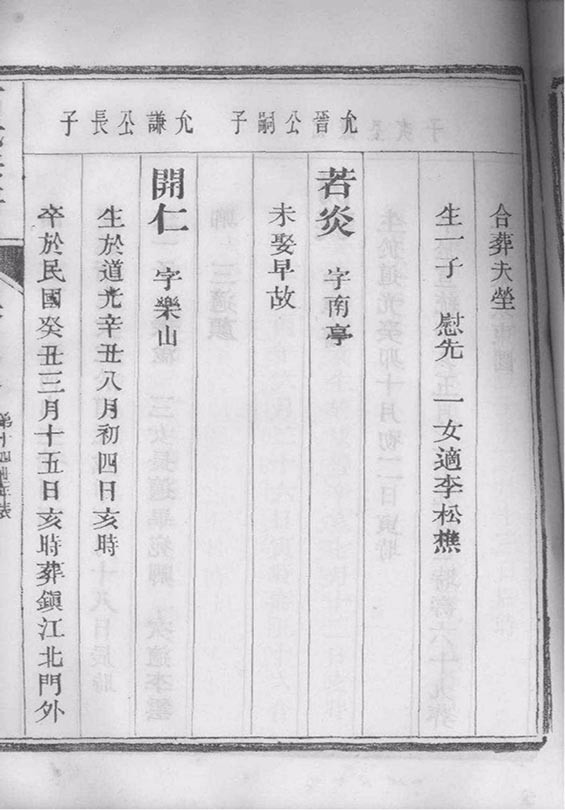 合葬夫塋
生一子 慰先 一女適李松樵
允晉公嗣子
若炎 字南亭
未娶早故
允謙公長子
開仁 字樂山
生於道光辛丑八月初四日亥時
卒於民國癸丑三月十五日亥時葬鎭江北門外